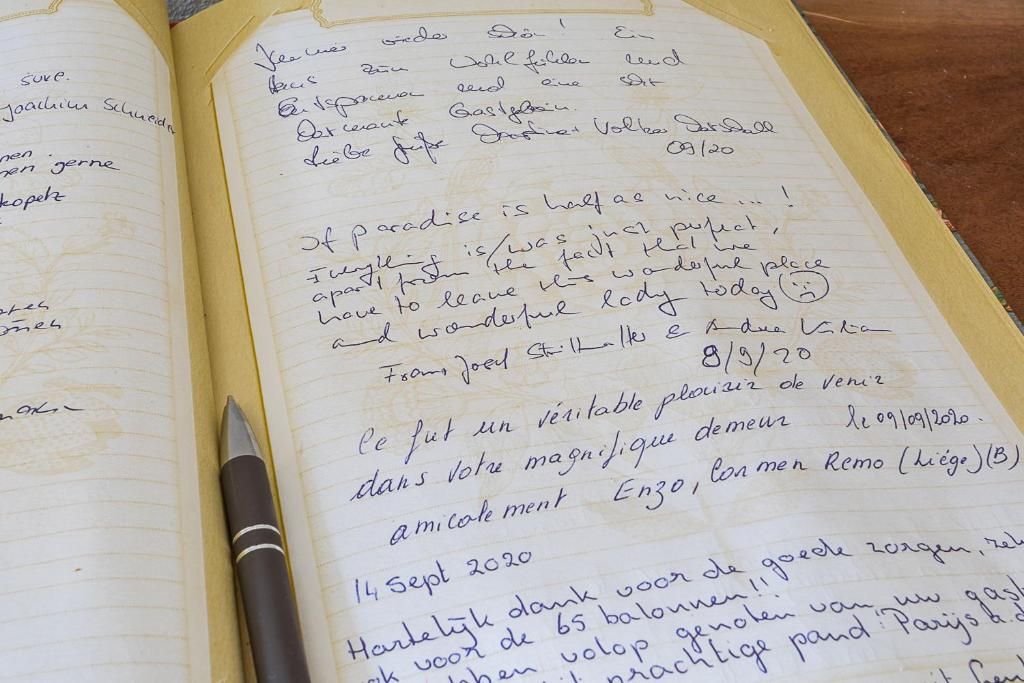 sure.
Joachim Schneider
nen
nen gerne
kopetz
Immer wieder schön! Ein
Haus zum Wohlfühlen und
Entspannen und eine
Gastgeberin.
Liebe Grüße Volker
09/20
If paradise is half as nice ... !
Everything is/was just perfect,
apart from the fact that we
have to leave this wonderful place
and wonderful lady today
Franz Josef & Andrea
8/9/20
Ce fut un véritable plaisir de venir
dans votre magnifique demeur le 09/09/2020.
amicalement Enzo, Carmen Remo (Liége) (B)
14 Sept 2020
Hartelijk dank voor de goede zorgen,
ok voor de 65 balonnen!!
bben volop genoten van uw gast
prachtige pand. Parijs a.d.